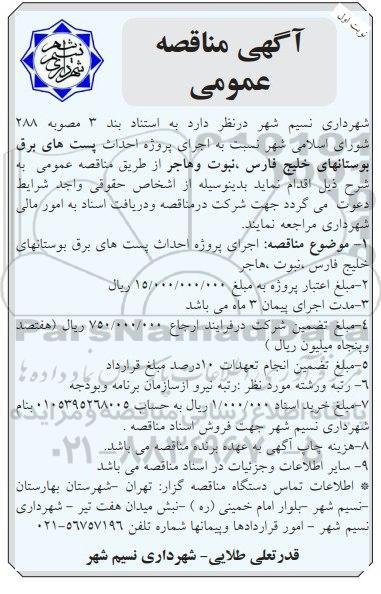 نوبت اول
آگهی مناقصه
عمومی
شهرداری نسیم شهر
شهرداری نسیم شهر درنظر دارد به استناد بند ۳ مصوبه ۲۸۸
شورای اسلامی شهر نسبت به اجرای پروژه احداث پست های برق
بوستانهای خلیج فارس ،نبوت وهاجر از طریق مناقصه عمومی به
شرح ذیل اقدام نماید بدینوسیله از اشخاص حقوقی واجد شرایط
دعوت می گردد جهت شرکت درمناقصه ودریافت اسناد به امور مالی
شهرداری مراجعه نمایند.
۱- موضوع مناقصه: اجرای پروژه احداث پست های برق بوستانهای
خلیج فارس ،نبوت ،هاجر
۲-مبلغ اعتبار پروژه به مبلغ ۱۵/۰۰۰/۰۰۰/۰۰۰ ریال
۳-مدت اجرای پیمان ۳ ماه می باشد
۴-مبلغ تضمین شرکت درفرایند ارجاع ۷۵۰/۰۰۰/۰۰۰ ریال (هفتصد
وپنجاه میلیون ریال )
۵-مبلغ تضمین انجام تعهدات ۱۰درصد مبلغ قرارداد
۶- رتبه ورشته مورد نظر :رتبه نیرو ازسازمان برنامه وبودجه
۷-مبلغ خرید اسناد ۱/۰۰۰/۰۰۰ ریال به حساب ۰۱۰۵۳۹۵۲۶۸۰۰۵ بنام
شهرداری نسیم شهر جهت فروش اسناد مناقصه .
۸-هزینه چاپ آگهی به عهده برنده مناقصه می باشد.
۹- سایر اطلاعات وجزئیات در اسناد مناقصه می باشد
* اطلاعات تماس دستگاه مناقصه گزار: تهران -شهرستان بهارستان
-نسیم شهر -بلوار امام خمینی (ره ) -نبش میدان هفت تیر - شهرداری
نسیم شهر - امور قراردادها وپیمانها شماره تلفن ۵۶۷۵۷۱۹۶-۰۲۱
قدرتعلی طلایی- شهرداری نسیم شهر
ParsNamadData